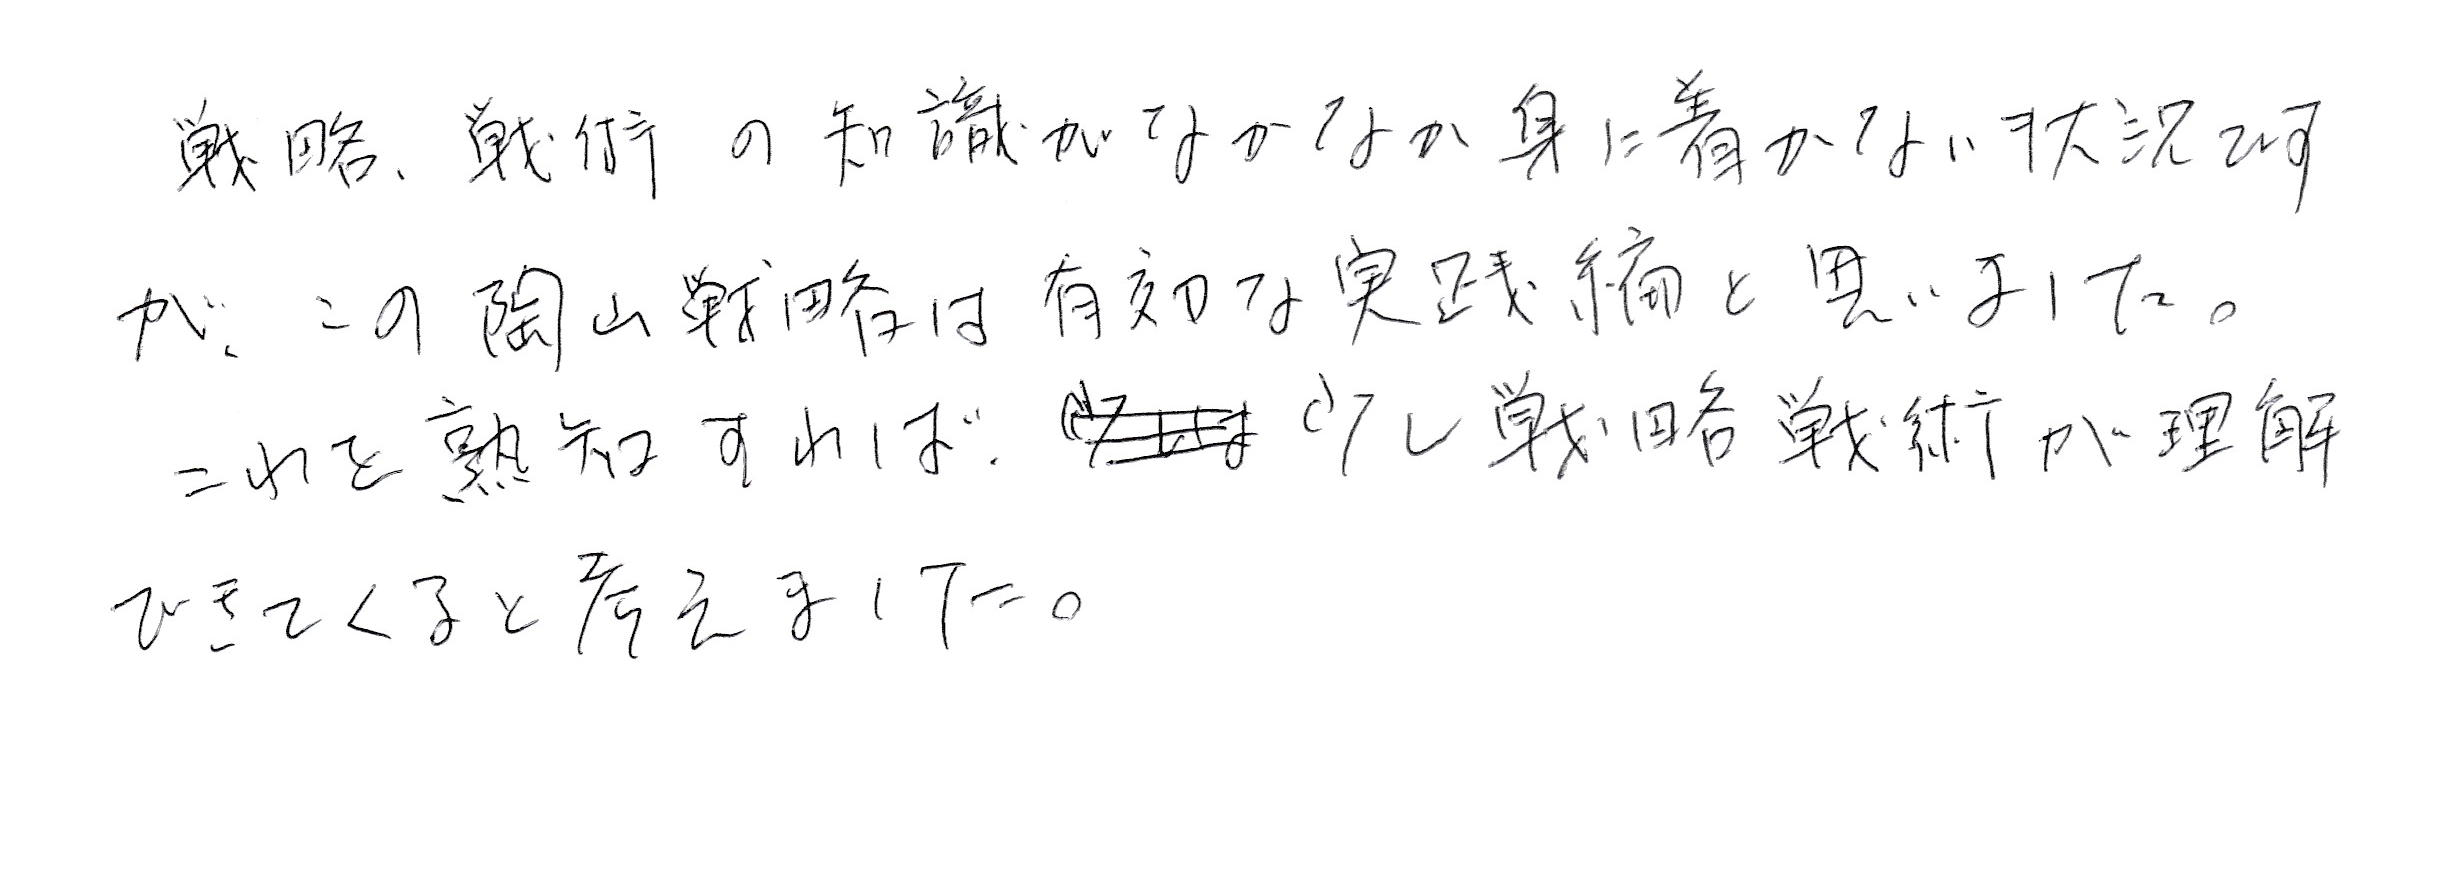 戦略、戦術の知識がなかなか身に着かない状況です
が、この陶山戦略は有効な実践編と思いました。
これを熟知すれば、少し戦略戦術が理解
できてくると考えました。